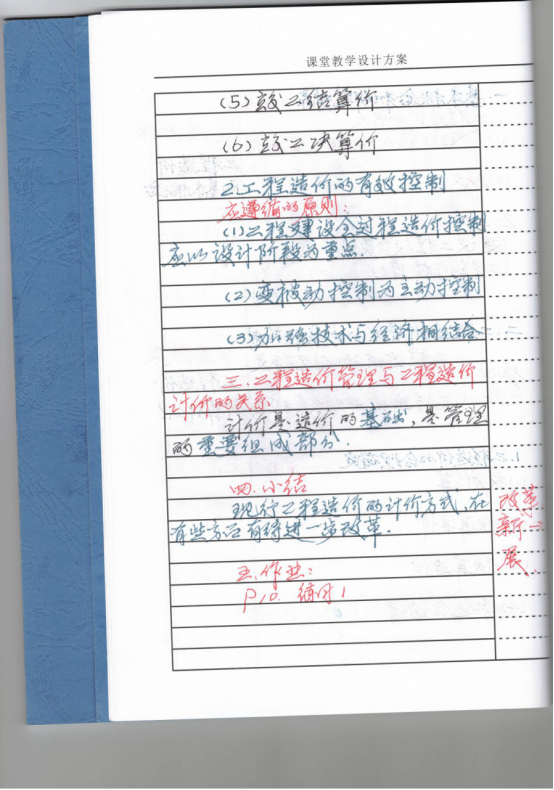 课堂教学设计方案
(5) 竣工结算价
(6) 竣工决算价
2.工程造价的有效控制
应遵循的原则:
(1)工程建设全过程造价控制
应以设计阶段为重点.
(2)变被动控制为主动控制
(3)加强技术与经济相结合
三.工程造价管理与工程造价
计价的关系
计价是造价的基础,是管理
的重要组成部分.
四.小结
现行工程造价的计价方式,在
有些方面有待进一步改革.
五.作业:
P10. 练习1
改革
新
展.